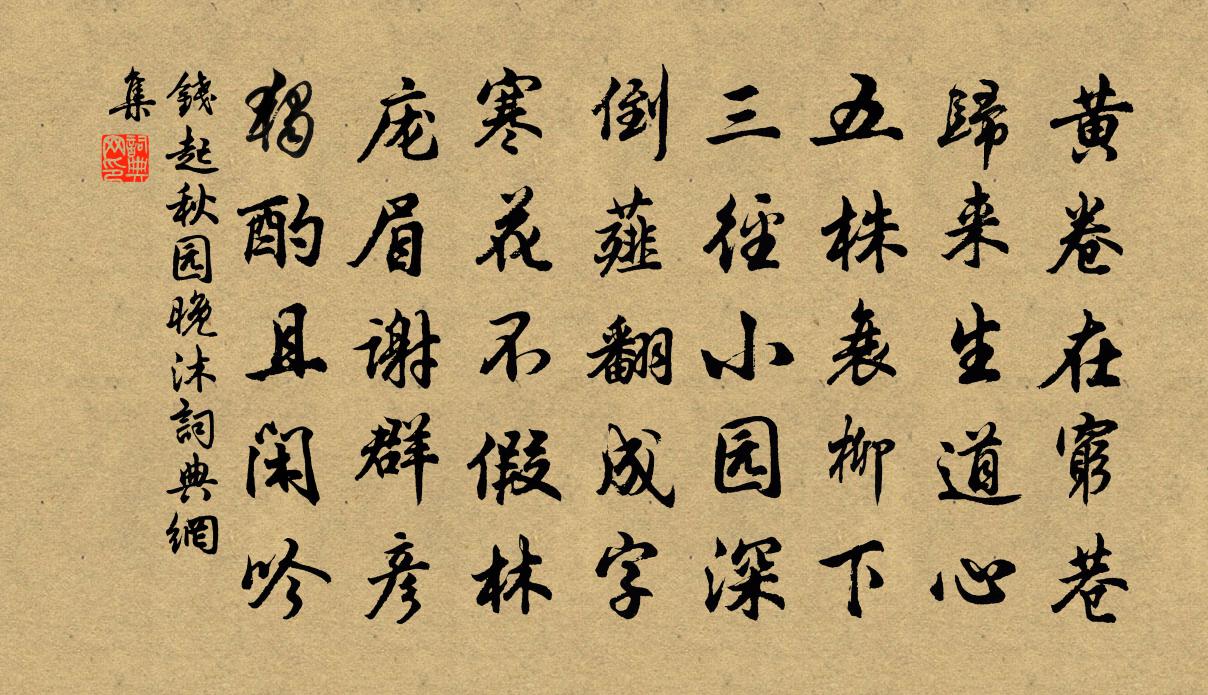 黄卷在穷巷
歸来生道心
五株衰柳下
三径小园深
倒薤翻成字
寒花不假林
庞眉谢群彦
独酌且闲吟
錢起秋园晚沐詞典網
集
詞典
网印